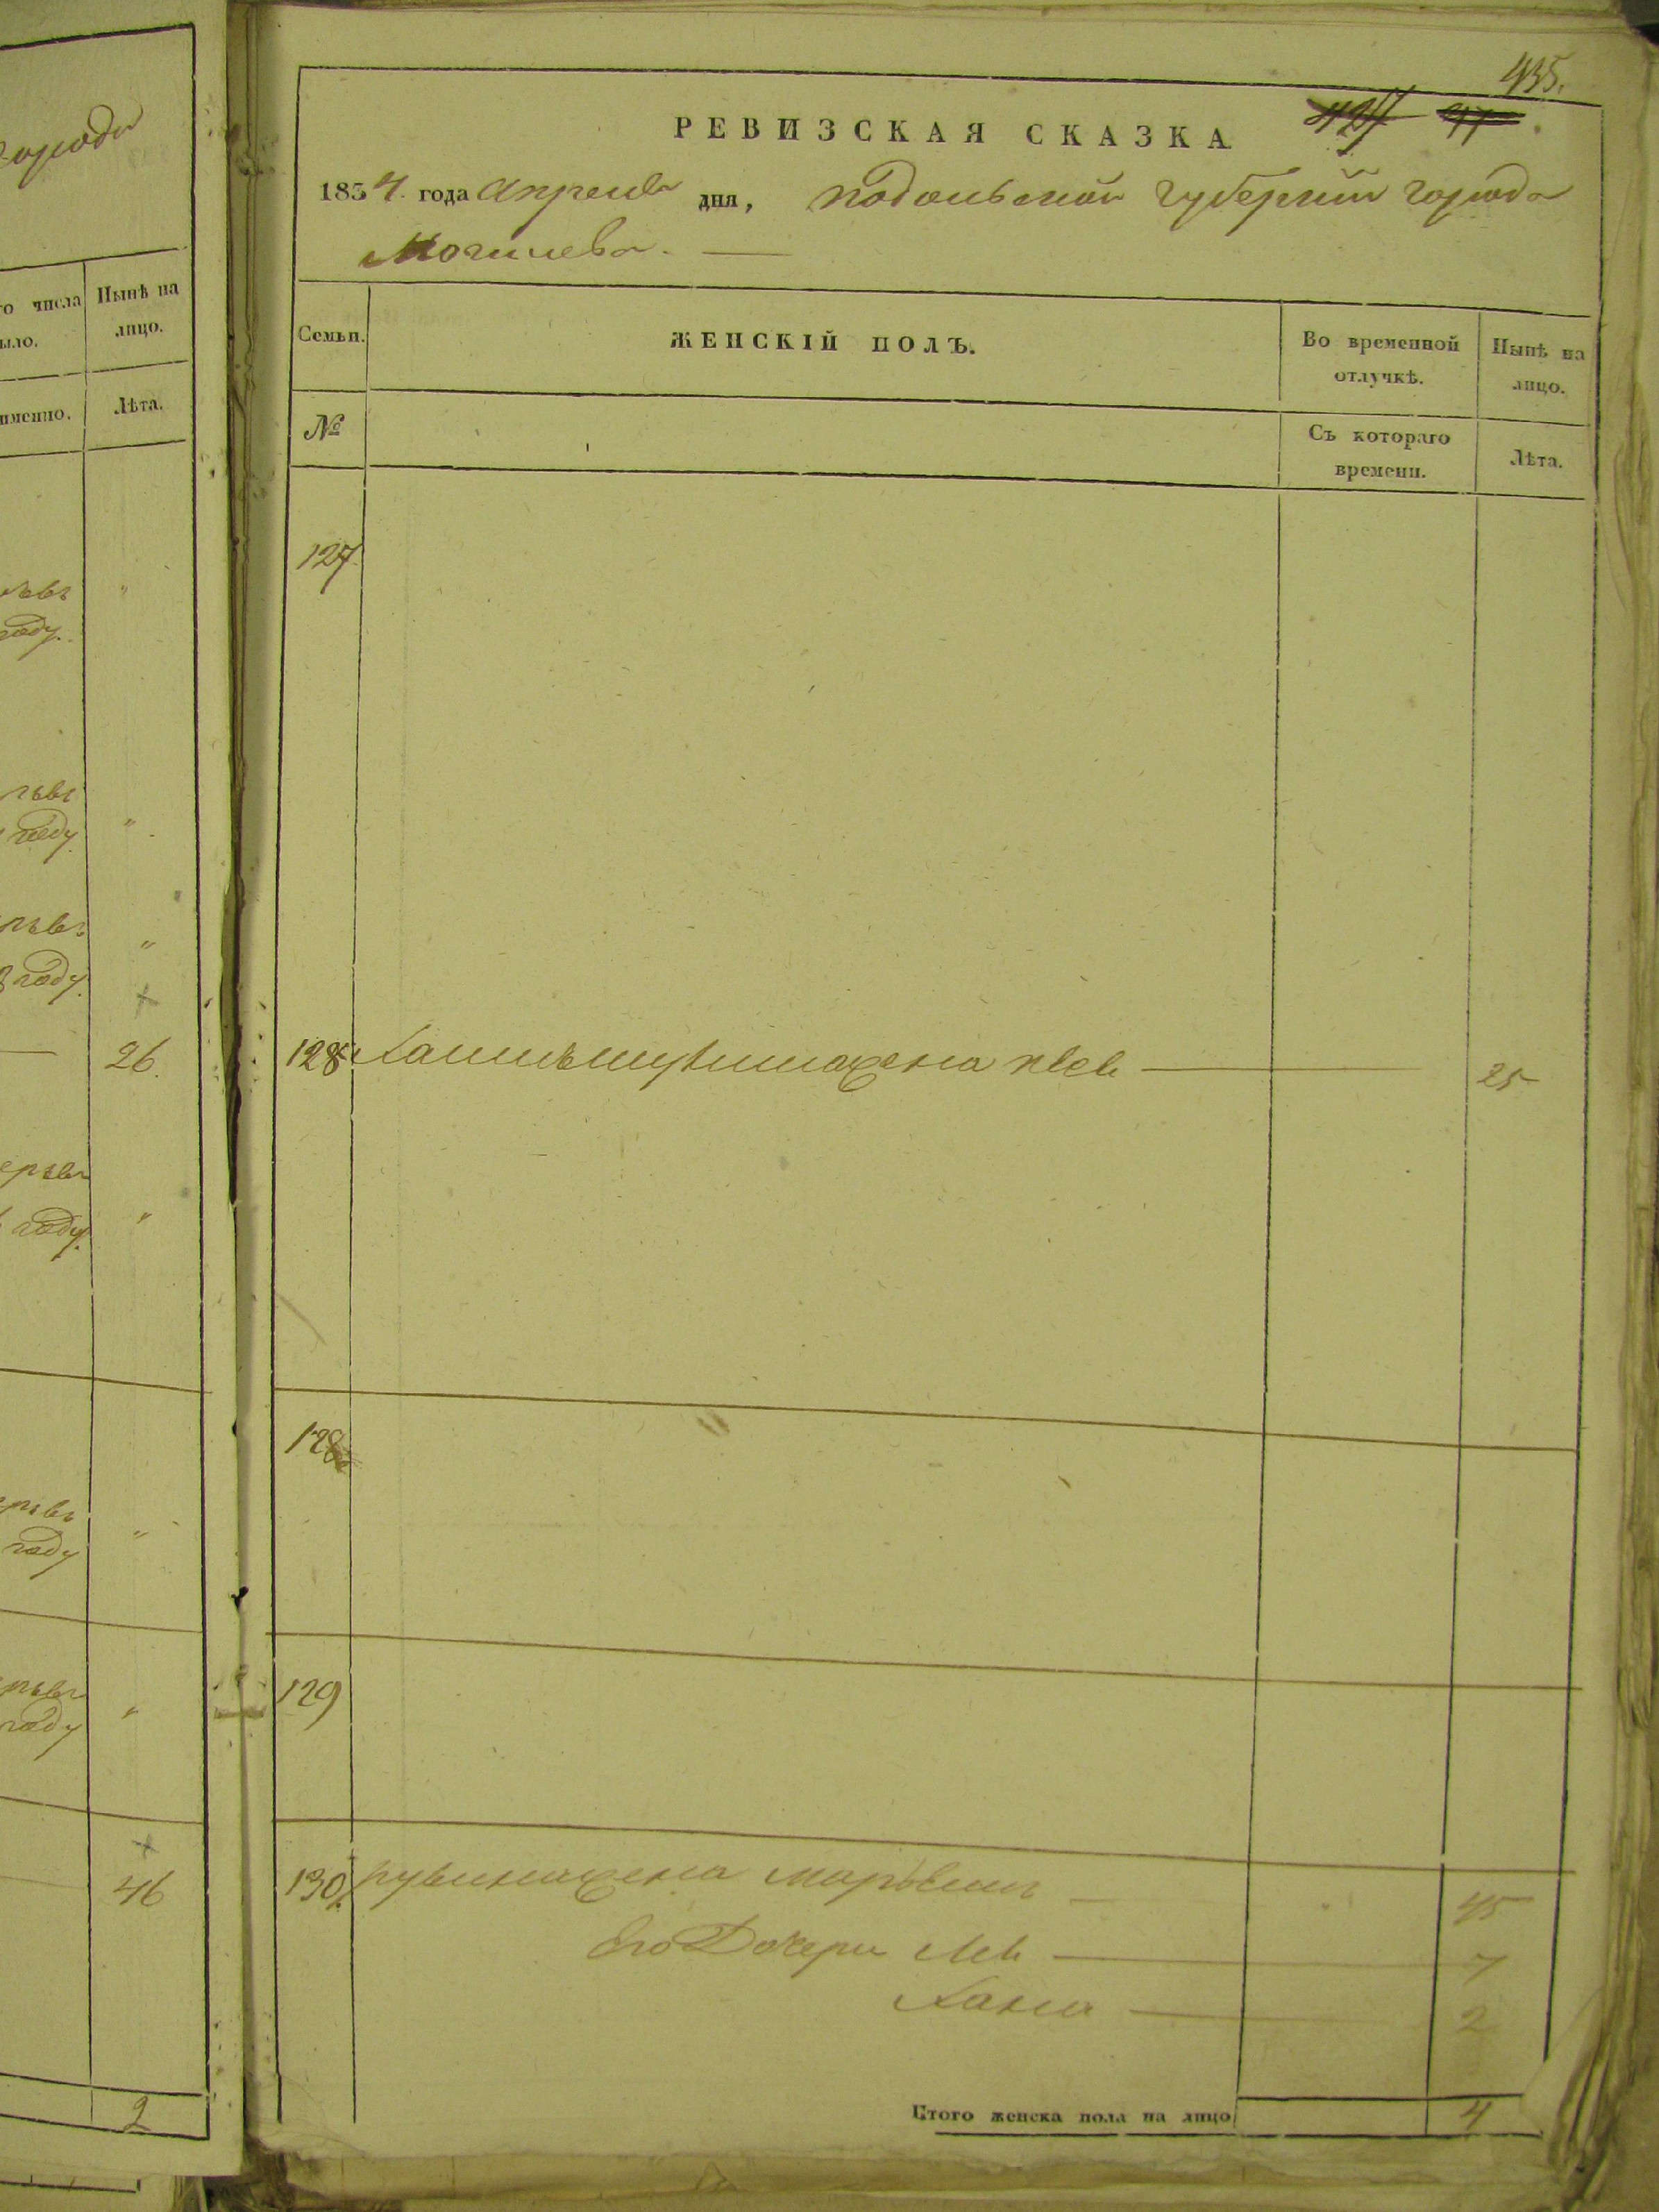 городъ
го числа Нынѣ на
ыло. лицо.
именно. Лѣта.
году.
году.
году.
26.
году.
году
году
46
2
435.
РЕВИЗСКАЯ СКАЗКА
1834. года Апреля дня, Подольской губернии города
Могилева.
Семьи. ЖЕНСКІЙ ПОЛЪ. Во временной отлучкѣ. Нынѣ на лицо.
№ Съ котораго времени. Лѣта.
127.
128 жена 25
128
129
130. Рувина жена 45
его Дочери Лея 7
Хана 2
Итого женска пола на лицо 4